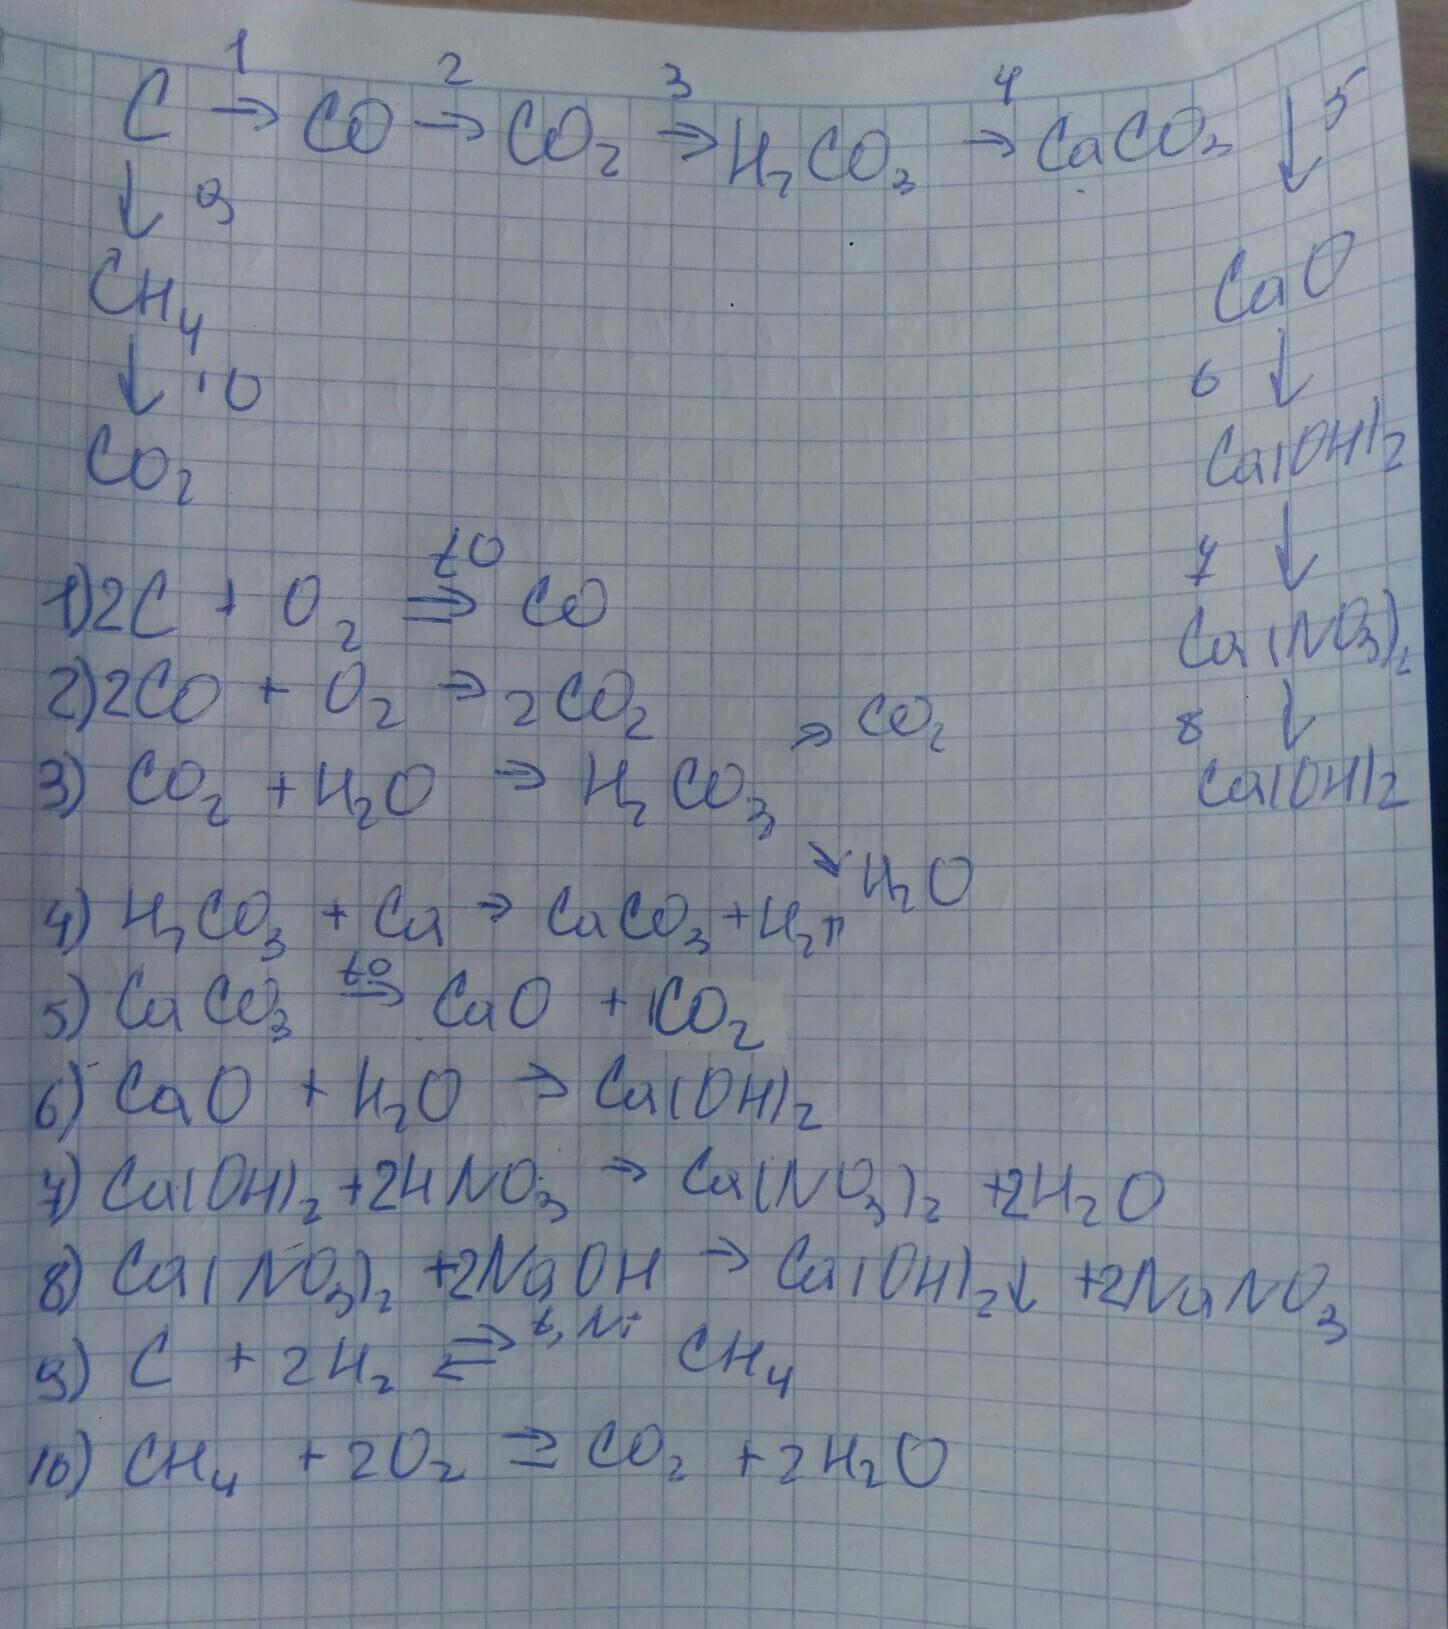 1 2 3 4
C → CO → CO₂ → H₂CO₃ → CaCO₃ ↓ 5
↓ 9
CH₄
CaO
↓ 10
6 ↓
CO₂
Ca(OH)₂
7 ↓
Ca(NO₃)₂
8 ↓
Ca(OH)₂
t0
1) 2C + O₂ ⇒ CO
2) 2CO + O₂ → 2CO₂
→ CO₂
3) CO₂ + H₂O → H₂CO₃
↘ H₂O
4) H₂CO₃ + Ca → CaCO₃ + H₂↑
t0
5) CaCO₃ ⇒ CaO + CO₂
6) CaO + H₂O → Ca(OH)₂
7) Ca(OH)₂ + 2HNO₃ → Ca(NO₃)₂ + 2H₂O
8) Ca(NO₃)₂ + 2NaOH → Ca(OH)₂↓ + 2NaNO₃
t, Ni
9) C + 2H₂ ⇄ CH₄
10) CH₄ + 2O₂ → CO₂ + 2H₂O